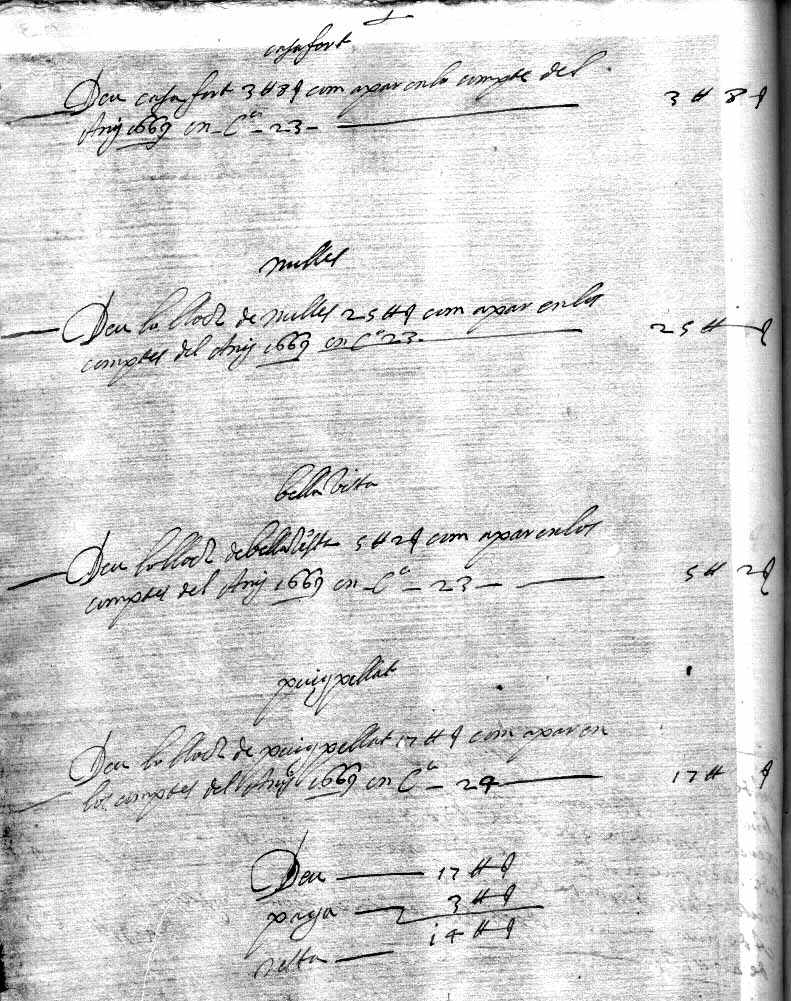 casafort
Deu casafort 3 ₶ 8 ſ com apar en lo compte del
Any 1669 en Cª 23 — 3 ₶ 8 ſ
nulles
Deu lo lloch de nulles 25 ₶ ſ com apar en los
comptes del Any 1669 en Cª 23. — 25 ₶ ſ
bella vista
Deu lo lloch de bella vista 5 ₶ 2 ſ com apar en los
comptes del Any 1669 en Cª 23 — 5 ₶ 2 ſ
puigpellat
Deu lo lloch de puigpellat 17 ₶ ſ com apar en
los comptes del Any 1669 en Cª 24 — 17 ₶ ſ
Deu — 17 ₶ ſ
paga — 3 ₶ ſ
resta — 14 ₶ ſ